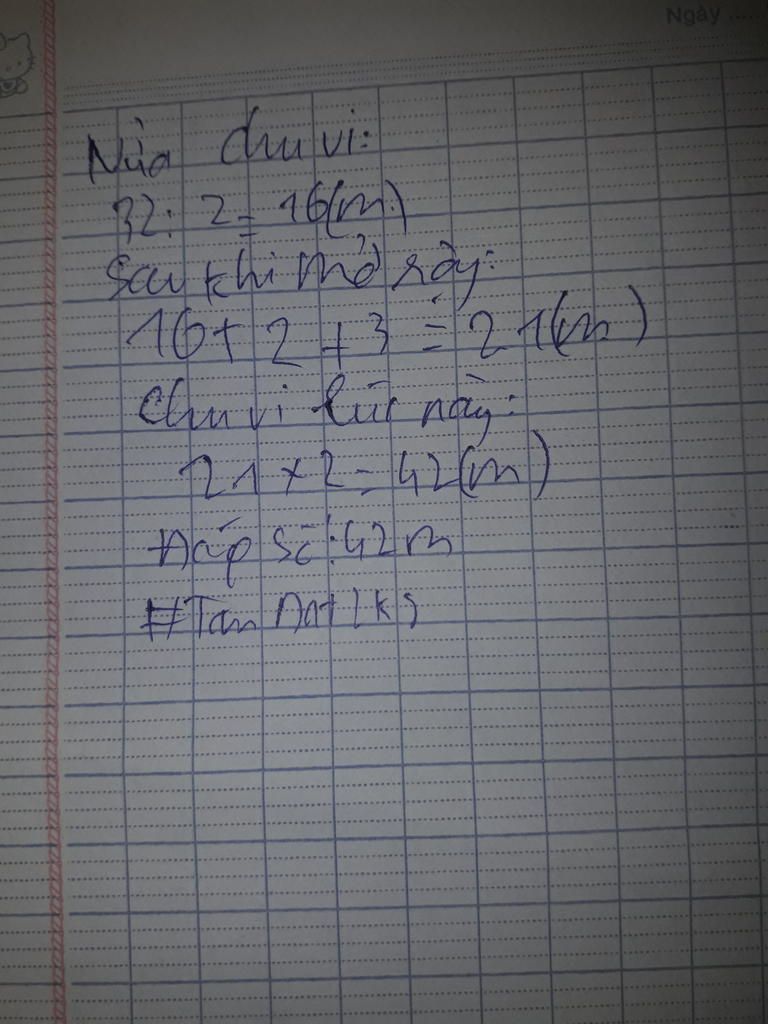 Ngày ......
Nửa chu vi:
32: 2 = 16(m)
Sau khi mở rộng:
16 + 2 + 3 = 21(m)
Chu vi lúc này:
21 x 2 = 42(m)
Đáp số: 42 m